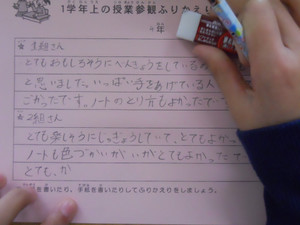 1学年上の授業参観ふりかえり
年
☆1組さん
とてもおもしろそうにべんきょうをしているな
と思いました。いっぱい手をあげている人
ごかったです。ノートのとり方もよかったで
☆2組さん
とても楽しそうにじっきょうしていて、とてもよか
ノートも色づかいが、いがとてもよかったで
とても、が
を書いたり、手紙を書いたりしてふりかえりをしましょう。